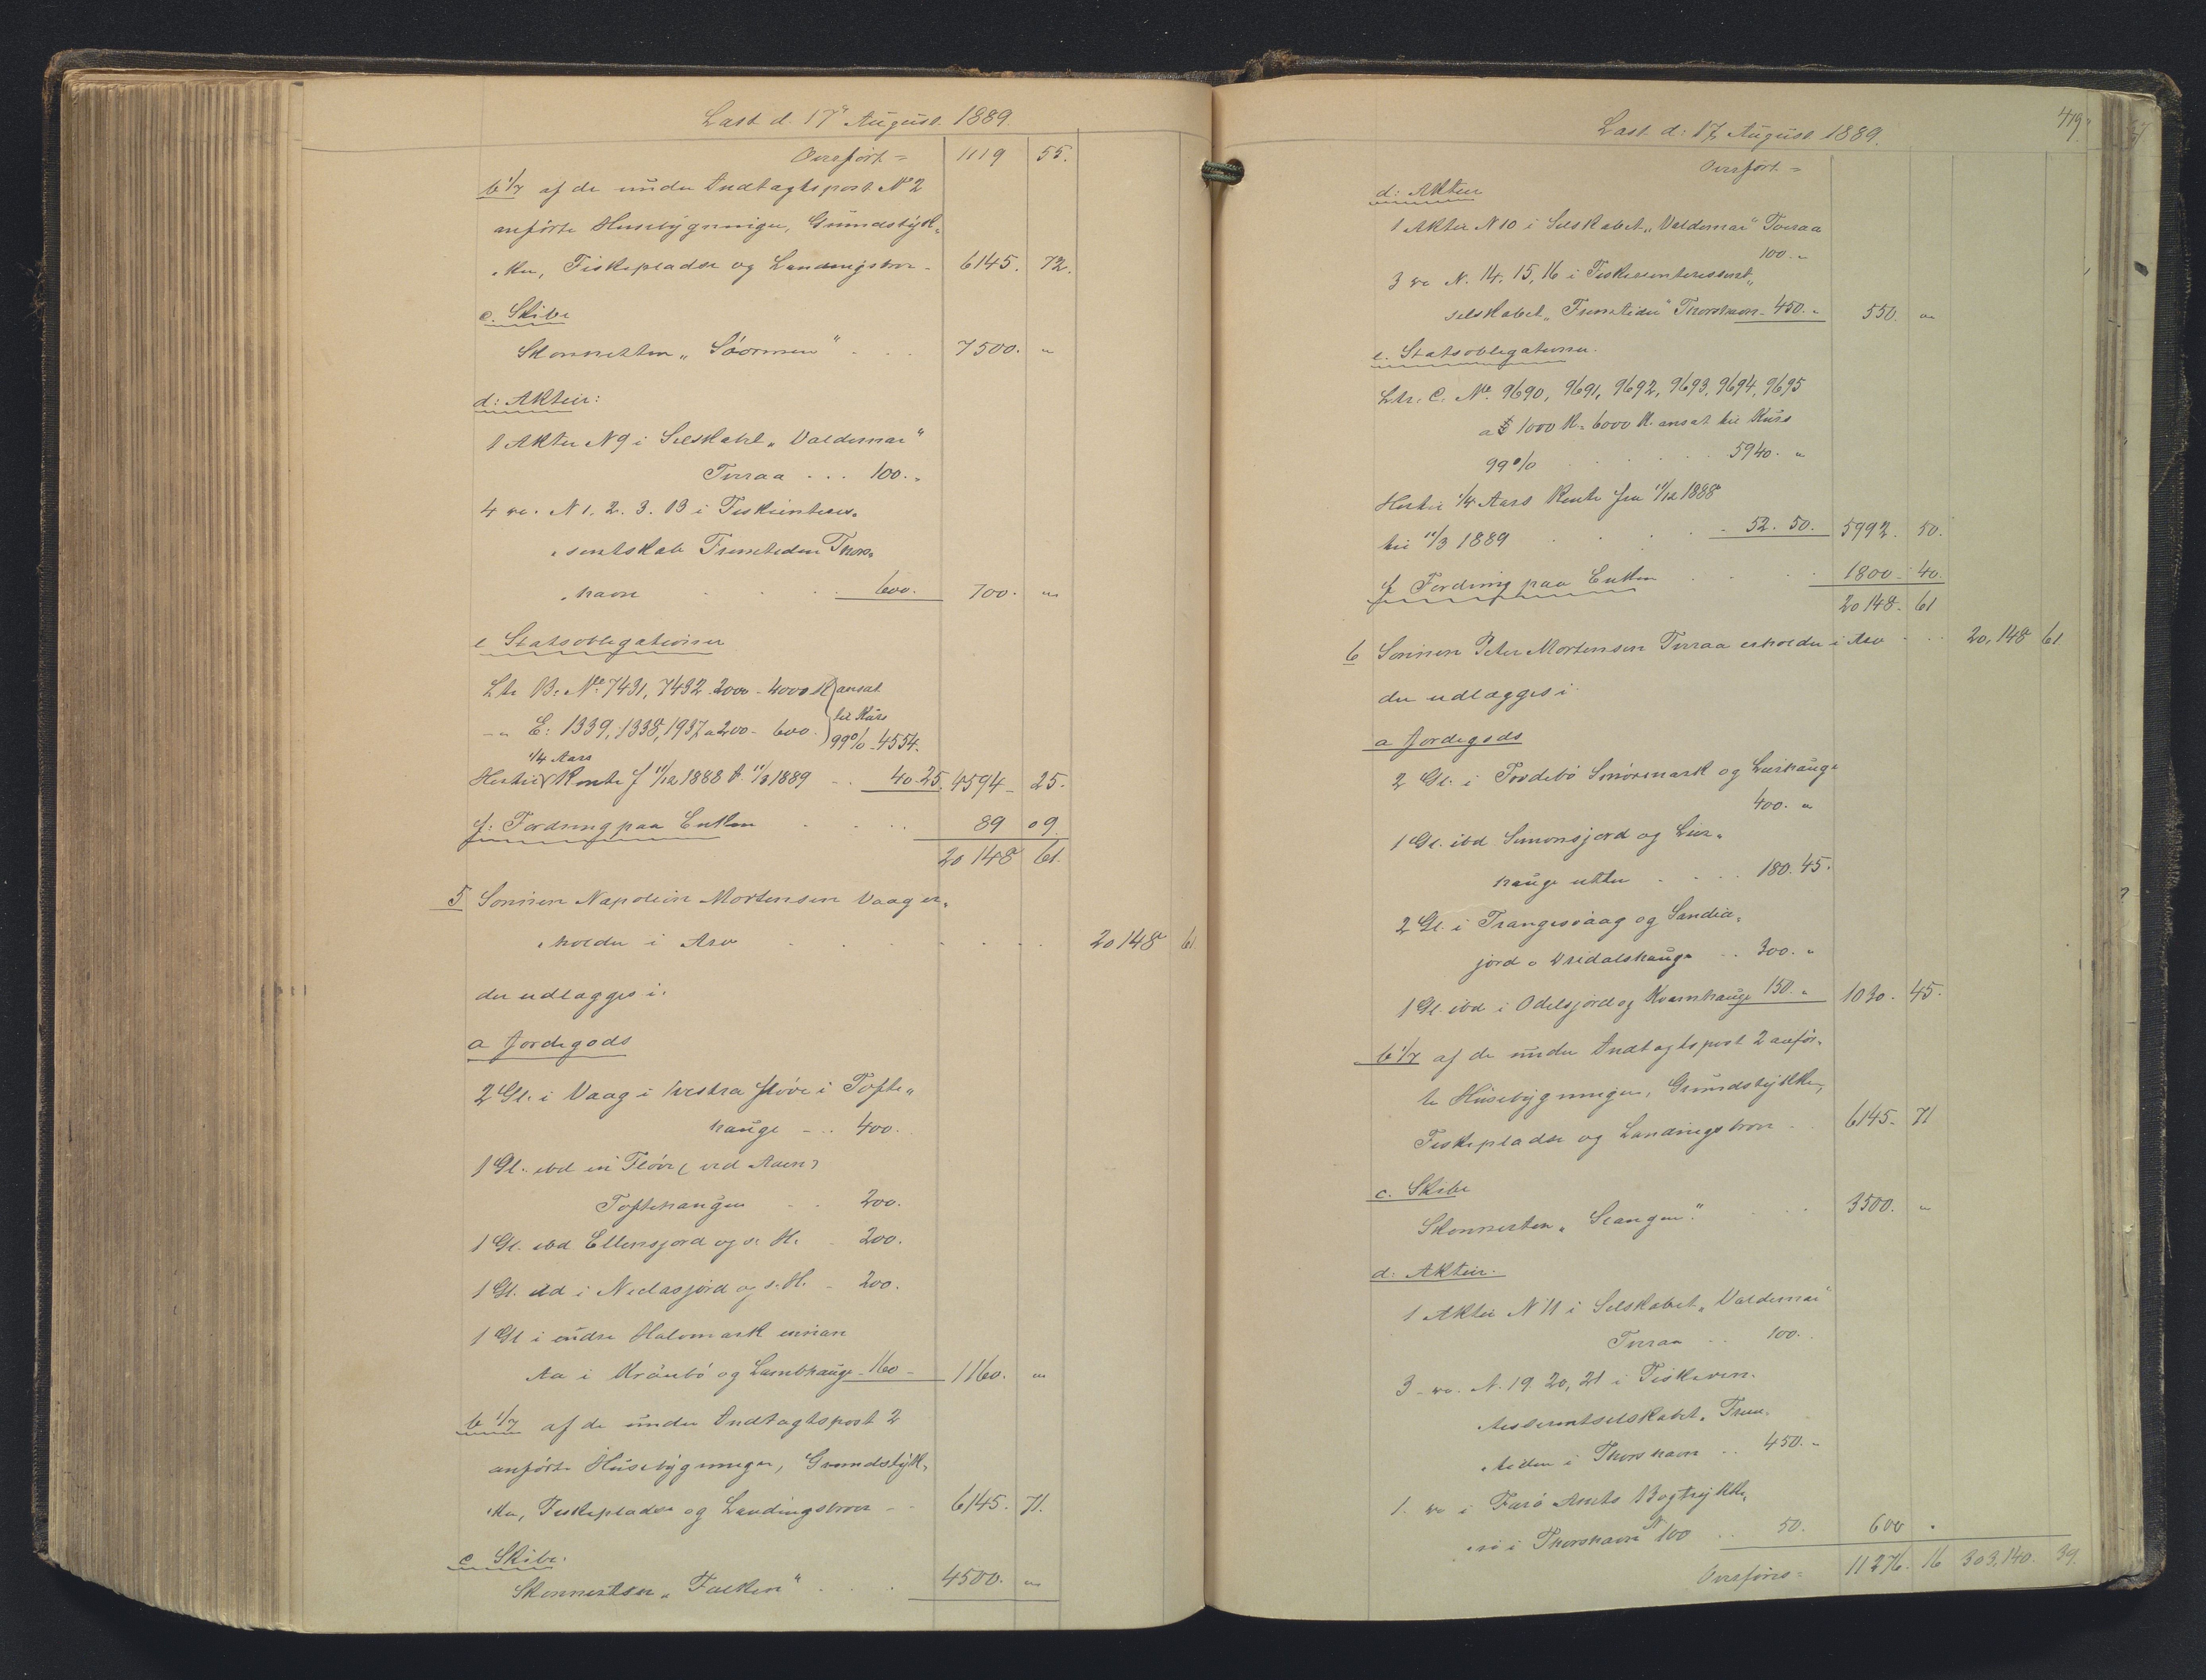 Last d. 17 August 1889.
Overført = 1119 55.
b 1/7 af de under Indtagtspost No 2
anførte Husebygninger, Grundstyk-
ker, Fiskepladse og Landingsbroe - 6145. 72.
c. Skibe
Skonnerten „Søormen" . . . 7500. "
d: Aktier:
1 Aktie N 9 i Selskabet „Valdemar"
Tveraa . . . 100. "
4 do. N 1. 2. 3. 13 i Fiskeinteres-
sentskab Fremtiden Thors-
havn . . . 600. 700. "
e Statsobligationer
Ltr B. No 7431, 7432 2000 - 4000 K ansat
- " E: 1339, 1338, 1937 a 200 - 600. til Kurs
99% - 4554.
1/4 Aars
Hertil Rente f 11/12 1888 t. 11/3 1889 - . 40. 25. 4594 - 25.
f: Fordring paa Enken . . . 89 09.
20 148 61.
5 Sønnen Napoleon Mortensen Vaag er-
holder i Arv . . . 20 148 61.
der udlægges i:
a Jordegods
2 Gl. i Vaag i Vestra Fløve i Tofte-
hauge - . . 400.
1 Gl. ibd in Fløve (ved Aaen)
Toftehaugen . . 200.
1 Gl. ibd Ellensjord og s. H. . 200.
1 Gl. ibd i Niclasjord og s. H. - 200.
1 Gl i øndre Halvmark innan
Aa i Krøubø og Lambhauge - 160 - 1160. "
b 1/7 af de under Indtagtspost 2
anførte Husebygninger, Grundstyk-
ker, Fiskepladse og Landingsbroer - . 6145. 71.
c Skibe.
Skonnerten „Falken" . . . 4500. "
419.
Last d: 17 August 1889.
Overført =
d: Aktier
1 Aktie N 10 i Selskabet „Valdemar" Tveraa
100. "
3 do N. 14, 15, 16 i Fiskeriinteressent-
selskabet „Fremtiden" Thorshavn - 450. " 550. "
e. Statsobligationer.
Ltr. C. No. 9690, 9691, 9692, 9693, 9694, 9695
a 1000 K. = 6000 K. ansat til Kurs
99% . . . 5940. "
Hertil 1/4 Aars Rente fra 11/12 1888
til 11/3 1889 . . . 52. 50. 5992. 50.
f. Fordring paa Enken . . . 1800. 40.
20 148. 61
6 Sønnen Peter Mortensen Tveraa erholder i Arv . . . 20,148 61
der udlægges i
a Jordegods
2 Gl. i Frodebø Snøremark og Lüshauge
400. "
1 Gl. ibd Simonsjord og Lüs-
hauge utter . . . 180. 45.
2 Gl. i Trangesvaag og Sandia-
jord o Dridalshauge . . 300. "
1 Gl. ibd i Odelsjord og Kvarnhauge 150. " 1030. 45.
b 1/7 af de under Indtagtspost 2 anfør-
te Husebygninger, Grundstykker,
Fiskepladse og Landingsbroe . . 6145. 71
c. Skibe
Skonnerten „Slangen". . . . 3500. "
d: Aktier.
1 Aktie N 11 i Selskabet „Valdemar"
Tveraa . . 100. .
3 - do. N. 19. 20, 21 i Fiskeriin-
teressentselskabet „Frem-
tiden i Thorshavn . . 450. "
1. do i Færø Amts Bogtrykke-
ri i Thorshavn N 100 . . 50. 600 "
Overføres = 11276. 16 303,140. 39.